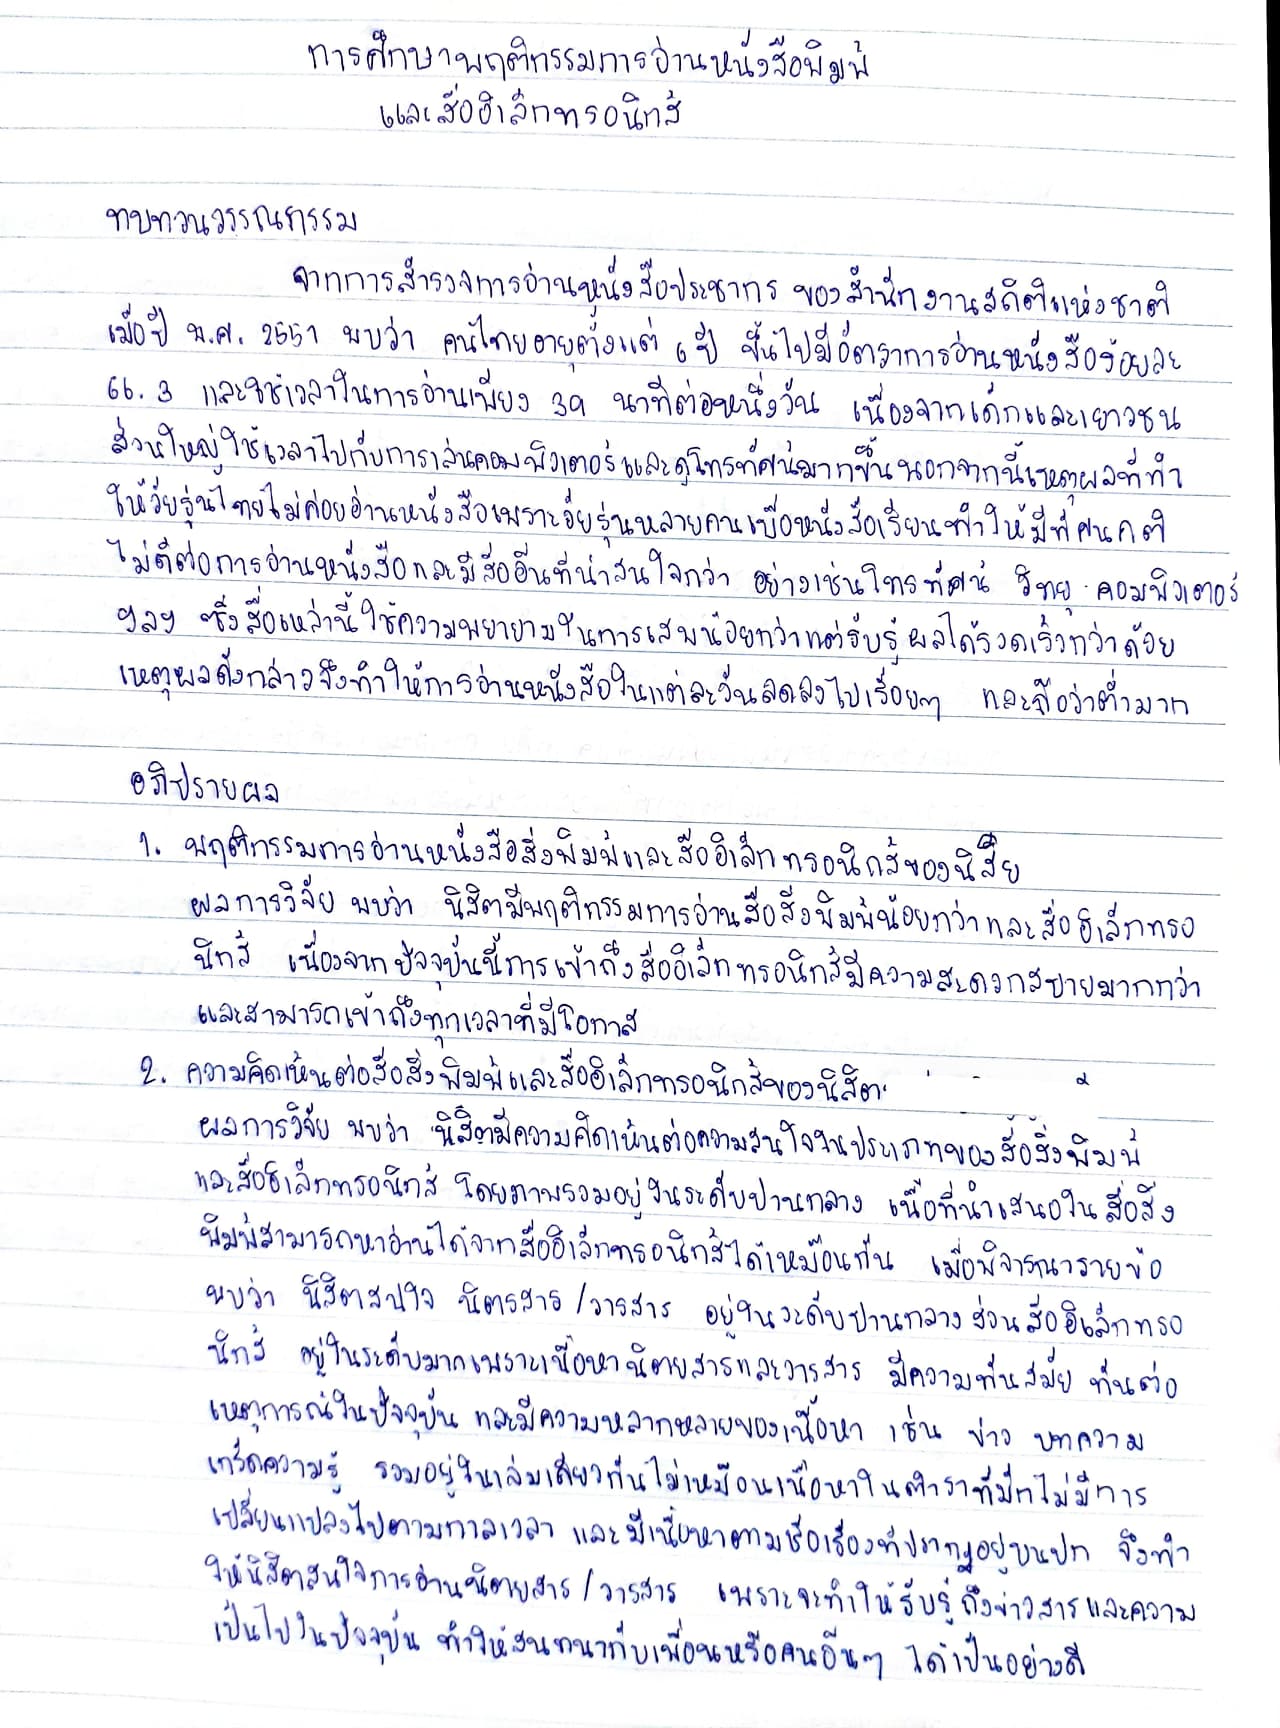 การศึกษาพฤติกรรมการอ่านหนังสือพิมพ์
และสื่ออิเล็กทรอนิกส์
ทบทวนวรรณกรรม
จากการสำรวจการอ่านหนังสือประชากร ของสำนักงานสถิติแห่งชาติ
เมื่อปี พ.ศ. 2551 พบว่า คนไทยอายุตั้งแต่ 6 ปี ขึ้นไปมีอัตราการอ่านหนังสือร้อยละ
66.3 และใช้เวลาในการอ่านเพียง 39 นาทีต่อหนึ่งวัน เนื่องจากเด็กและเยาวชน
ส่วนใหญ่ใช้เวลาไปกับการเล่นคอมพิวเตอร์และดูโทรทัศน์มากขึ้นนอกจากนี้เหตุผลที่ทำ
ให้วัยรุ่นไทยไม่ค่อยอ่านหนังสือเพราะวัยรุ่นหลายคนเบื่อหนังสือเรียนทำให้มีทัศนคติ
ไม่ดีต่อการอ่านหนังสือและมีสื่ออื่นที่น่าสนใจกว่า อย่างเช่นโทรทัศน์ วิทยุ คอมพิวเตอร์
ฯลฯ ซึ่งสื่อเหล่านี้ใช้ความพยายามในการเสพน้อยกว่าแต่รับรู้ผลได้รวดเร็วกว่าด้วย
เหตุผลดังกล่าวจึงทำให้การอ่านหนังสือในแต่ละวันลดลงไปเรื่อยๆ และถือว่าต่ำมาก
อภิปรายผล
1. พฤติกรรมการอ่านหนังสือสิ่งพิมพ์และสื่ออิเล็กทรอนิกส์ของ
ผลการวิจัย พบว่า นิสิตมีพฤติกรรมการอ่านสื่อสิ่งพิมพ์น้อยกว่าและสื่ออิเล็กทรอ
นิกส์ เนื่องจากปัจจุบันนี้การเข้าถึงสื่ออิเล็กทรอนิกส์มีความสะดวกสบายมากกว่า
และสามารถเข้าถึงทุกเวลาที่มีโอกาส
2. ความคิดเห็นต่อสื่อสิ่งพิมพ์และสื่ออิเล็กทรอนิกส์ของนิสิต
ผลการวิจัย พบว่า นิสิตมีความคิดเห็นต่อความสนใจในประเภทของสื่อสิ่งพิมพ์
และสื่ออิเล็กทรอนิกส์ โดยภาพรวมอยู่ในระดับปานกลาง เนื้อที่นำเสนอในสื่อสิ่ง
พิมพ์สามารถหาอ่านได้จากสื่ออิเล็กทรอนิกส์ได้เหมือนกัน เมื่อพิจารณารายข้อ
พบว่า นิสิตสนใจ นิตรสาร/วารสาร อยู่ในระดับปานกลางส่วนสื่ออิเล็กทรอ
นิกส์ อยู่ในระดับมากเพราะเนื้อหานิตยสารและวารสาร มีความทันสมัย ทันต่อ
เหตุการณ์ในปัจจุบัน และมีความหลากหลายของเนื้อหา เช่น ข่าว บทความ
เกร็ดความรู้ รวมอยู่ในเล่มเดียวกันไม่เหมือนเนื้อหาในตำราที่มักไม่มีการ
เปลี่ยนแปลงไปตามกาลเวลา และมีเนื้อหาตามชื่อเรื่องที่ปรากฏอยู่บนปก จึงทำ
ให้นิสิตสนใจการอ่านนิตยสาร/วารสาร เพราะจะทำให้รับรู้ถึงข่าวสารและความ
เป็นไปในปัจจุบัน ทำให้สนทนากับเพื่อนหรือคนอื่นๆ ได้เป็นอย่างดี